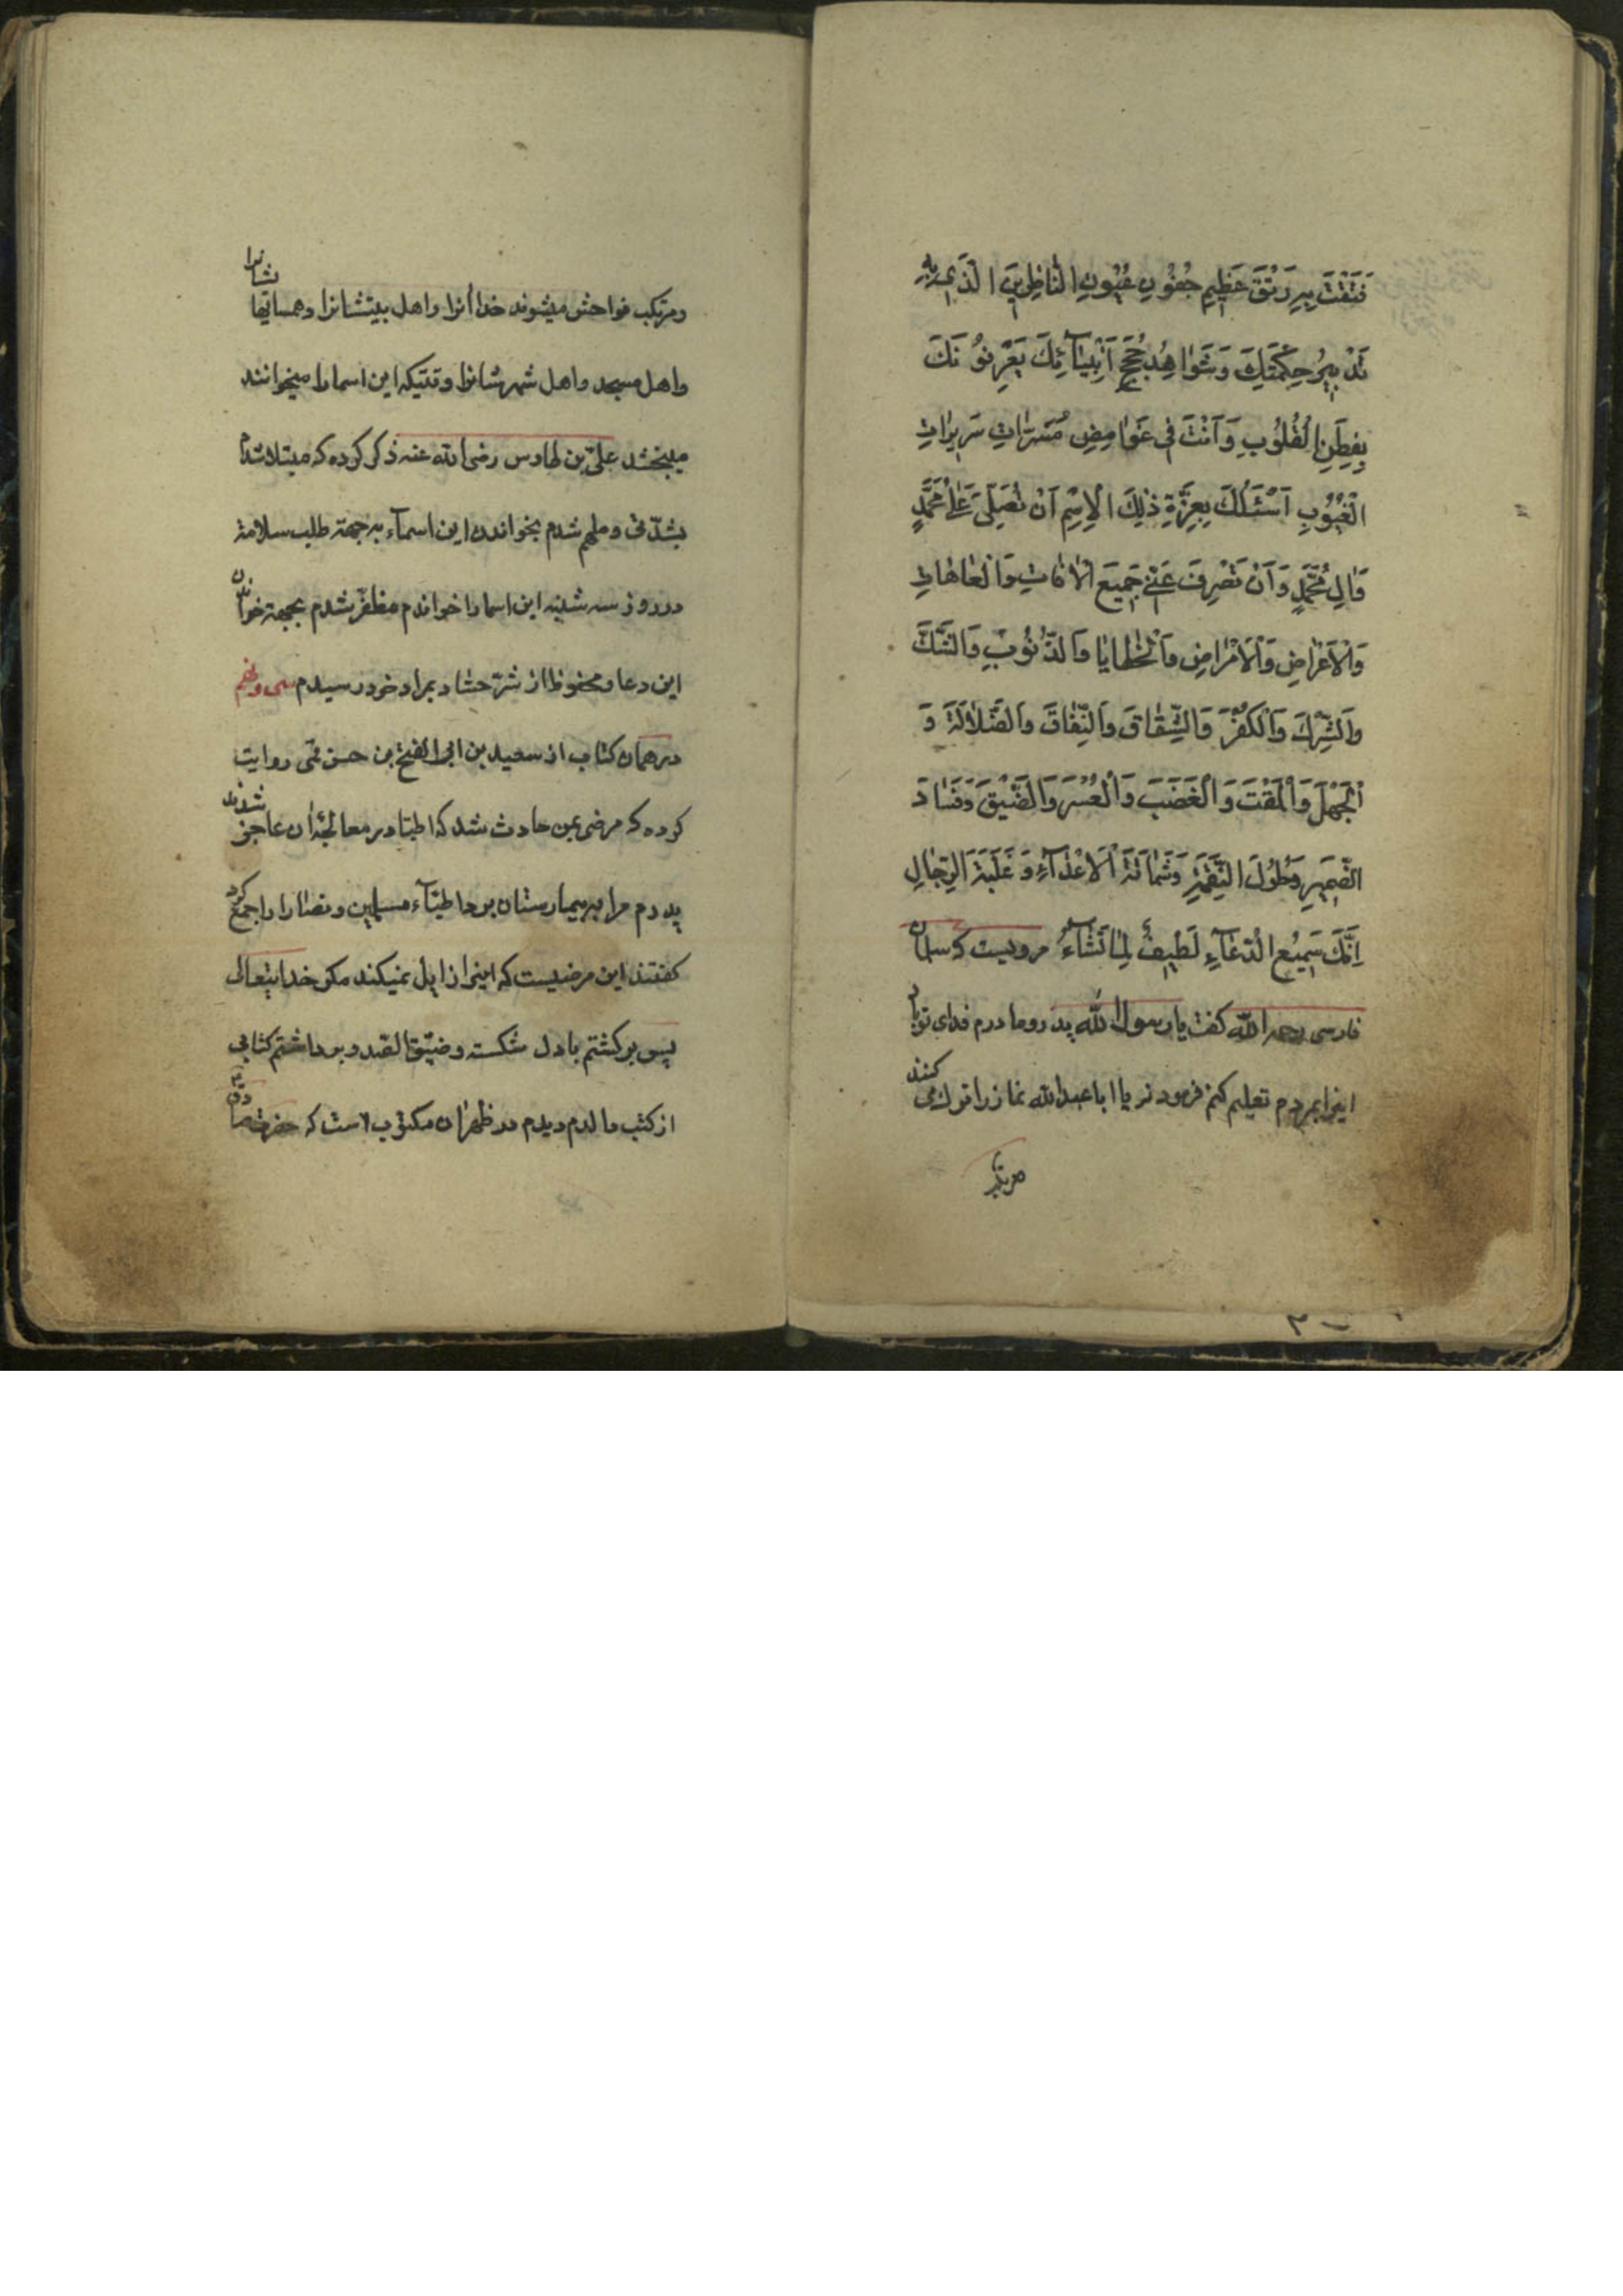 فَتَقْتَ بِهِ رَتْقَ عَظِيمِ جُفُونِ عُيُونِ النَّاظِرِينَ الَّذِي بِهِ
تَدْبِيرُ حِكْمَتِكَ وَشَوَاهِدُ حُجَجِ أَنْبِيَآئِكَ يَعْرِفُونَكَ
بِفِطَنِ الْقُلُوبِ وَأَنْتَ فِي غَوَامِضِ مُسَرَّاتِ سَرِيرَاتِ
الْغُيُوبِ أَسْئَلُكَ بِعِزَّةِ ذٰلِكَ الْاِسْمِ أَنْ تُصَلِّيَ عَلٰى مُحَمَّدٍ
وَآلِ مُحَمَّدٍ وَأَنْ تَصْرِفَ عَنِّي جَمِيعَ الْآفَاتِ وَالْعَاهَاتِ
وَالْأَعْرَاضِ وَالْأَمْرَاضِ وَالْخَطَايَا وَالذُّنُوبِ وَالشَّكَّ
وَالشِّرْكَ وَالْكُفْرَ وَالشِّقَاقَ وَالنِّفَاقَ وَالضَّلَالَةَ وَ
الْجَهْلَ وَالْمَقْتَ وَالْغَضَبَ وَالْعُسْرَ وَالضَّيْقَ وَفَسَادَ
الضَّمِيرِ وَحُلُولَ النَّقِمَةِ وَشَمَاتَةَ الْأَعْدَآءِ وَغَلَبَةَ الرِّجَالِ
إِنَّكَ سَمِيعُ الدُّعَآءِ لَطِيفٌ لِمَا تَشَآءُ مرویست که سلمان
فارسی رحمه الله کفت یا رسول الله پدر و مادرم فدای تو باد
اینرا بمردم تعلیم کنم فرمودند یا ابا عبدالله نماز را ترک می کنند
و مرتکب فواحش میشوند خدا آنرا و اهل بیتشانرا و همسایهاشانرا
و اهل مسجد و اهل شهرشانرا وقتیکه این اسما را میخوانند
میبخشد علیّ بن طاوس رضی الله عنه ذکر کرده که مبتلا شدم
بشدّتی و ملهم شدم بخواندن این اسمآء به جهة طلب سلامة
در روز سه شنبه این اسما را خواندم مظفّر شدم بجهة خواندن
این دعا و محفوظ از شرّ حسّاد بمراد خود رسیدم سی و پنجم
در همان کتاب از سعید بن ابی الفتح بن حسن قمی روایت
کرده که مرضی بمن حادث شد که اطبّا در معالجۀ ان عاجز شدند
پدرم مرا به بیمارستان برد اطبّآء مسلمین و نصارا را جمع کرد
کفتند این مرضیست که اینرا زایل نمیکند مکر خدایتعالی
پس برکشتم با دل شکسته و ضیّق الصدر و برداشتم کتابی
از کتب والدم دیدم در ظهر ان مکتوب است که حضرت صادق